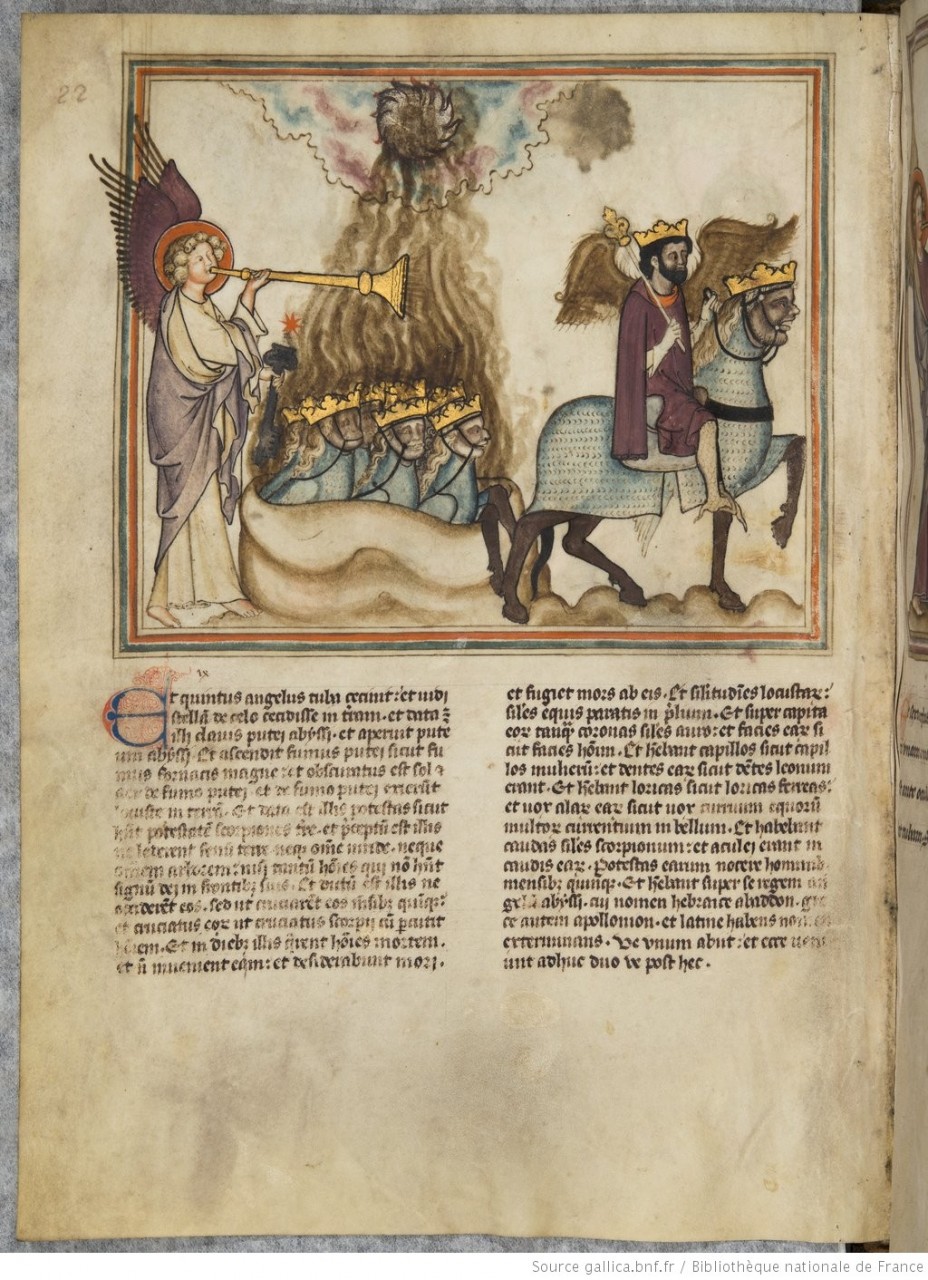 22
ıx
Et quintus angelus tuba cecinit: et uidi
stellā de celo cecidisse in tīam. et data ē
illi clauis putei abyssi. et aperuit pute
um abyssi. Et ascendit fumus putei sicut fu
mus fornacis magne: et obscuratus est sol ⁊
aer de fumo putei. et de fumo putei exierūt
locuste in terrā. Et data est illis potestas sicut
hn̄t potestatē scorpiones tr̄e. et p̄ceptū est illis
ne lederent fenū terre neqꝫ om̄e uiride. neque
omem arborem: nisi tantū hōies qui nō hn̄t
signū dei in frontibꝫ suis. Et datū est illis ne
occiderēt eos. sed ut cruciarēt eos mēsibꝫ quiqꝫ:
et cruciatus eoꝝ ut cruciatus scorpii cū pcutit
hōiem. Et in diebꝫ illis q̄rent hōies mortem.
et ñ inuenient eam: et desiderabunt mori.
et fugiet mors ab eis. Et silitudīes locustaꝝ:
siles equis paratis in p̄lium. Et super capita
eaꝝ tanqꝫ coronas siles auro: et facies eaꝝ si
cut facies hōim. Et hēbant capillos sicut capil
los mulierū: et dentes eaꝝ sicut dētes leonum
erant. Et hēbant loricas sicut loricas ferreas:
et uox alaꝝ eaꝝ sicut uox curruum equorū
multoꝝ currentium in bellum. Et habebant
caudas siles scorpionum: et aculei erant in
caudis eaꝝ. Potestas earum nocere hominibꝫ
mensibꝫ quinqꝫ. Et hēbant super se regem an
gelū abyssi. cui nomen hebraice abaddon. gre
ce autem apollimon. et latine habens nomen
exterminans. Ve unum abiit: et ecce ueni
unt adhuc duo ve post hec.
Source gallica.bnf.fr / Bibliothèque nationale de France